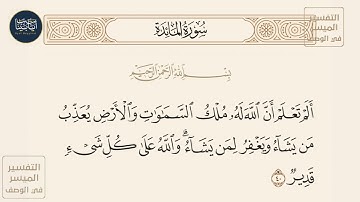 سُورَةُ المَائِدَةِ
التفسير
الميسر
في الوصف
بِسْمِ اللَّهِ الرَّحْمَٰنِ الرَّحِيمِ
أَلَمْ تَعْلَمْ أَنَّ اللَّهَ لَهُ مُلْكُ السَّمَٰوَٰتِ وَالْأَرْضِ يُعَذِّبُ
مَن يَشَآءُ وَيَغْفِرُ لِمَن يَشَآءُ ۗ وَاللَّهُ عَلَىٰ كُلِّ شَىْءٍ
قَدِيرٌ ٤٠
التفسير
الميسر
في الوصف